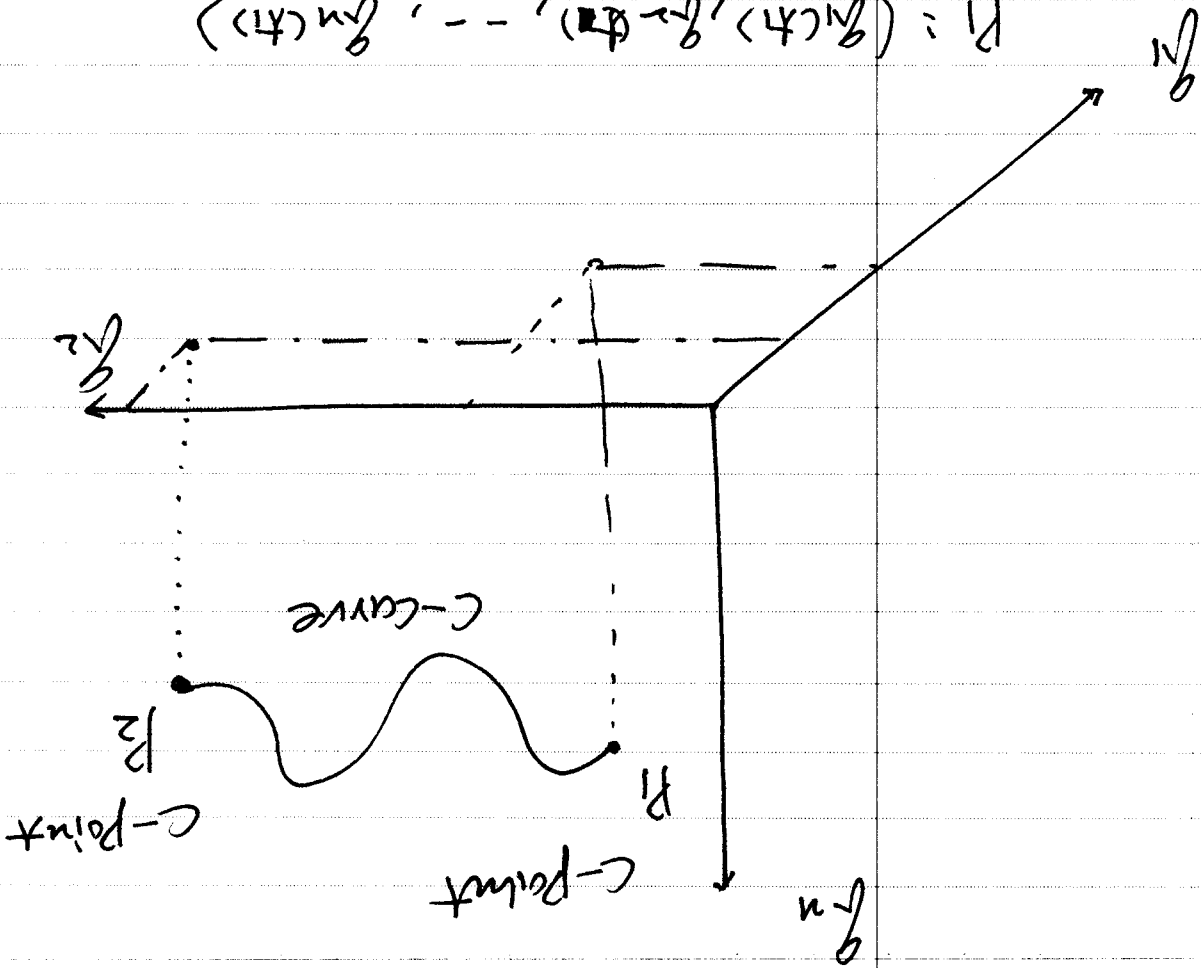 qn
C-point
C-point
P1
P2
C-curve
q2
q1
P1: (q1(t1), q2(t1), --, qn(t1))